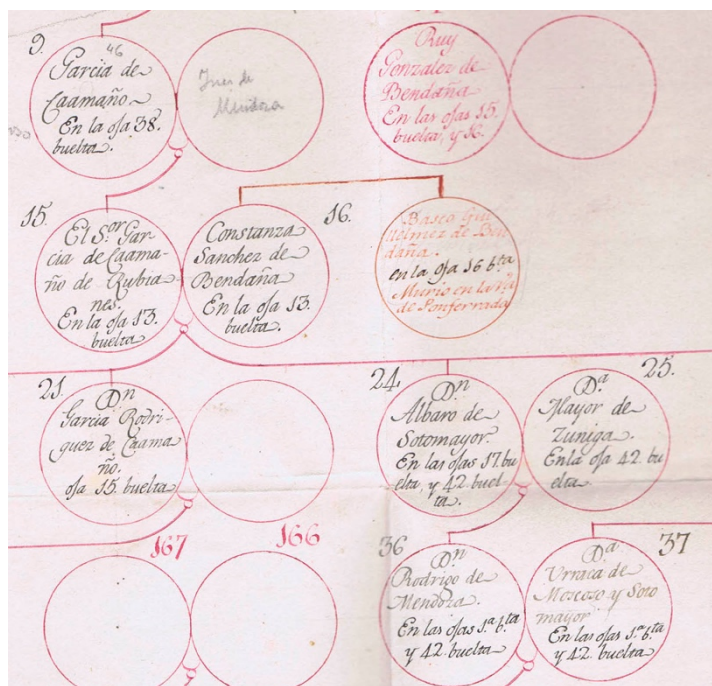 9.
46
Garcia de
Caamaño
En la oja 38.
buelta.
Ines de
Mendoza
Ruy
Gonzalez de
Bendaña
En las ojas 15.
buelta, y 16.
15.
El S.or Gar
cia de Caama-
ño de Rubia
nes.
En la oja 13.
buelta
Constanza
Sanchez de
Bendaña
En la oja 13.
buelta.
16.
Basco Gui
helmez de Ben
daña.
en la oja 16 b.ta
Murio en la
de Ponferrada
21.
Dn
Garcia Rodri-
guez de Caama
ño.
oja 15. buelta
24.
Dn
Albaro de
Sotomayor.
En las ojas 17. bu
elta, y 42. buel-
ta.
25.
D.a
Mayor de
Zuniga.
En la oja 42. bu
elta.
167
166
36
Dn
Rodrigo de
Mendoza.
En las ojas 1.a b.ta
y 42. buelta
37
D.a
Urraca de
Moscoso y Soto
mayor
En las ojas 1.a b.ta
y 42. buelta